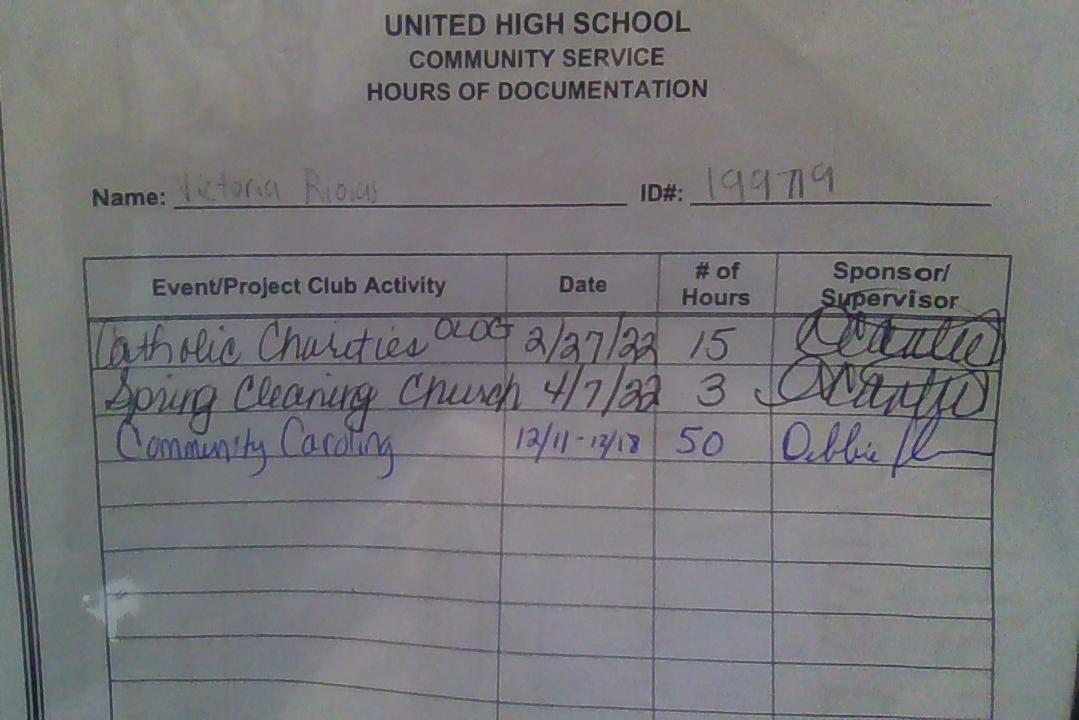 UNITED HIGH SCHOOL
COMMUNITY SERVICE
HOURS OF DOCUMENTATION
Name: Victoria ID#: 199719
Event/Project Club Activity Date # of Hours Sponsor/ Supervisor
Catholic Charities OLOG 2/27/22 15
Spring Cleaning Church 4/7/22 3
Community Caroling 12/11-12/18 50 Debbie